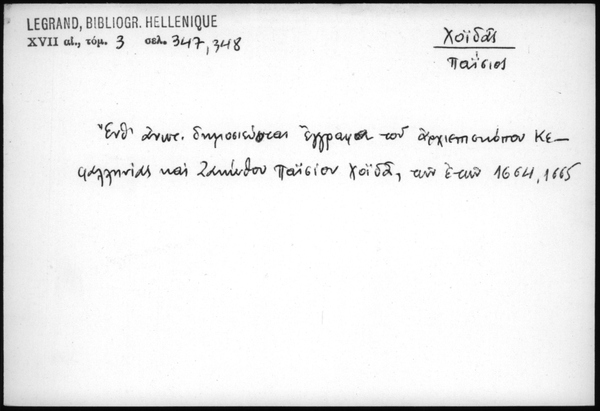 LEGRAND, BIBLIOGR. HELLENIQUE
XVII αἰ., τόμ. 3 σελ. 347, 348
Χοϊδᾶς
Παΐσιος
Ἔνθ' ἀνωτ. δημοσιεύεται ἔγγραφα τοῦ ἀρχιεπισκόπου Κε-
φαλληνίας καὶ Ζακύνθου Παϊσίου Χοϊδᾶ, τῶν ἐτῶν 1664, 1665